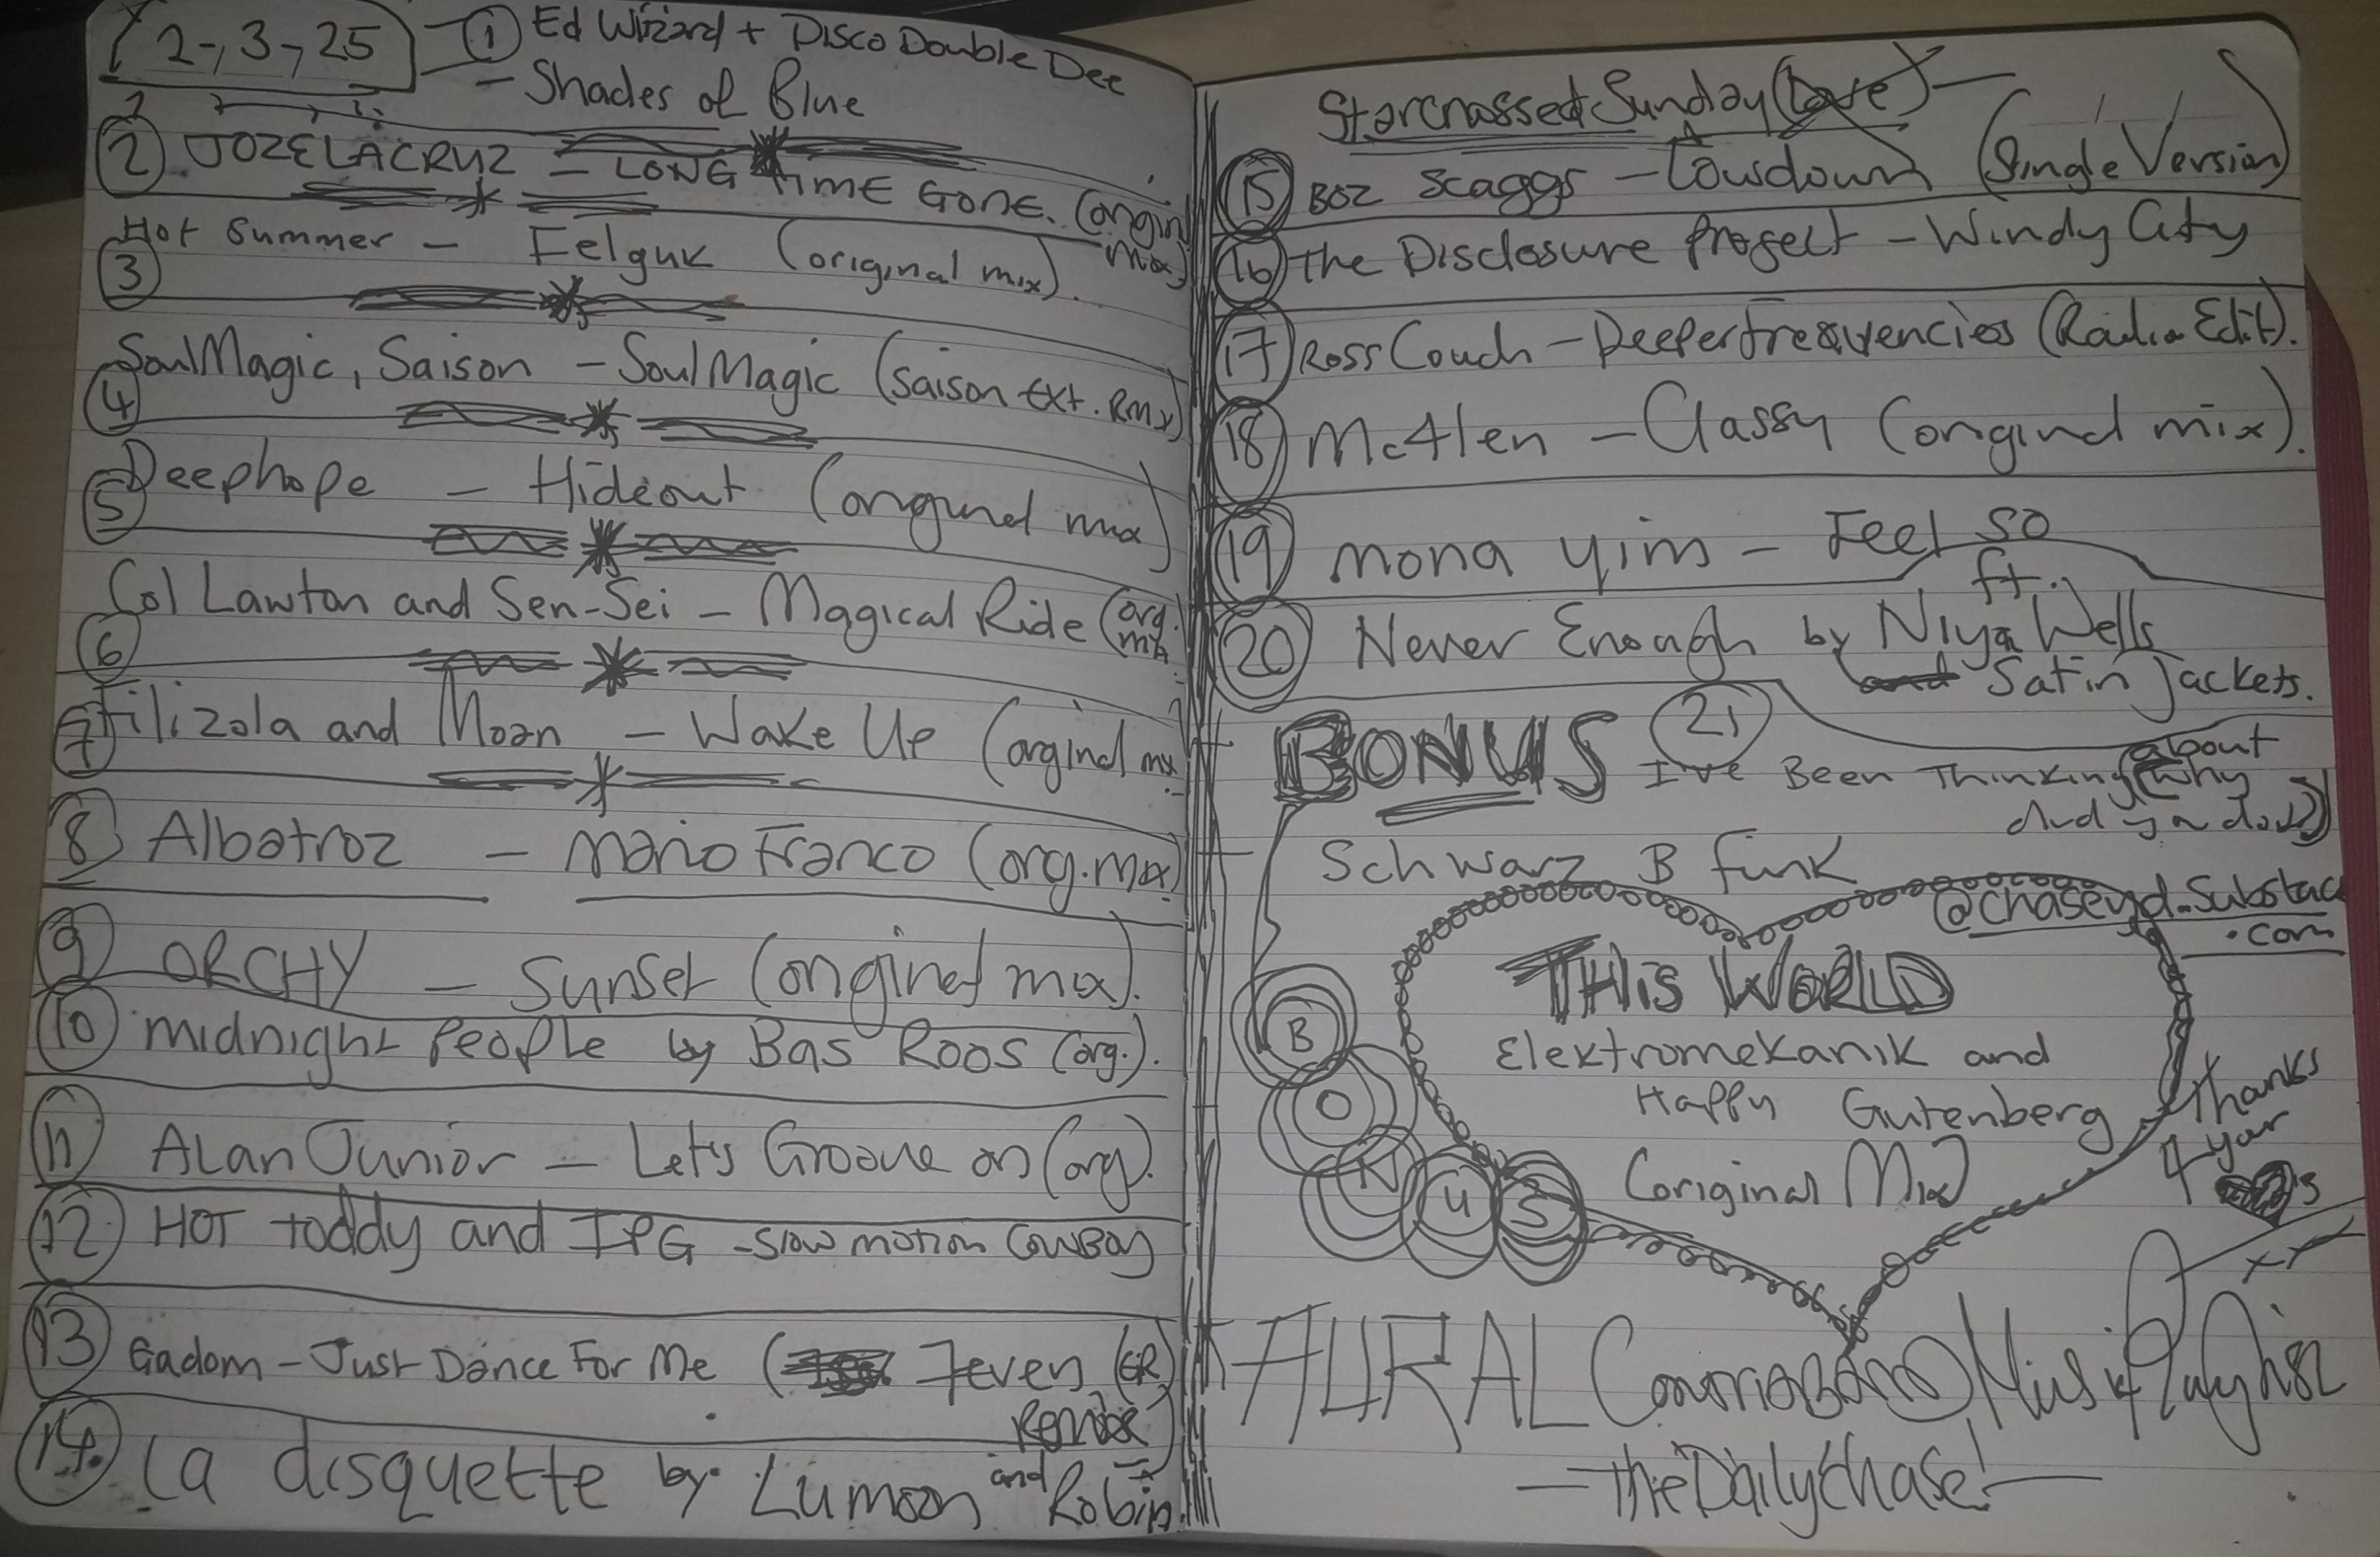 2-,3-,25
① Ed Wizard + Disco Double Dee
- Shades of Blue
② JOZELACRUZ - LONG TIME GONE. (origin
mix)
Hot Summer - Felguk (original mix).
③
SoulMagic, Saison - SoulMagic (saison ext. Rmx)
④
Deephope - Hideout (original mix)
⑤
Col Lawton and Sen-Sei - Magical Ride (org.
mix
⑥
Filizola and Moon - Wake Up (orginal mx
⑦
⑧ Albatroz - Mario Franco (org.mix)
⑨ ORCHY - Sunset (original mix).
⑩ midnight People by Bas Roos (org.).
⑪ Alan Junior - Let's Groove on (org).
⑫ HOT toddy and IPG - Slow motion COWBOY
⑬ Gadom - Just Dance For Me ( 7even (GR)
Remix)
⑭ La disquette by Lumoon and Robin.
Starcrossed Sunday (Love) -
⑮ BOZ Scaggs - Lowdown (Single Version)
⑯ The Disclosure Project - Windy City
⑰ Ross Couch - Deeper frequencies (Radio Edit).
⑱ Mc4len - Classy (original mix).
⑲ mona yim - Feel so
⑳ Never Enough by Niya Wells
ft.
and Satin Jackets.
BONUS ㉑ I've Been Thinking (about
why
And
Schwarz B Funk
@chaseyd.substack
.com
THIS WORLD
Elektromekanik and
Happy Gutenberg
(original Mix)
B
O
N
U
S
Thanks
4 your
's
xx
AURAL Contraband Music Playlist
- The Daily Chase! -